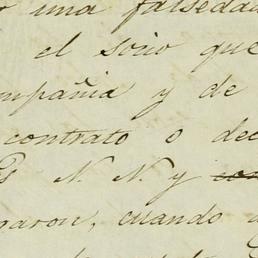 una falsedad
el socio que
mpañia y de
contrato o dec
N. N. y
garon, cuando